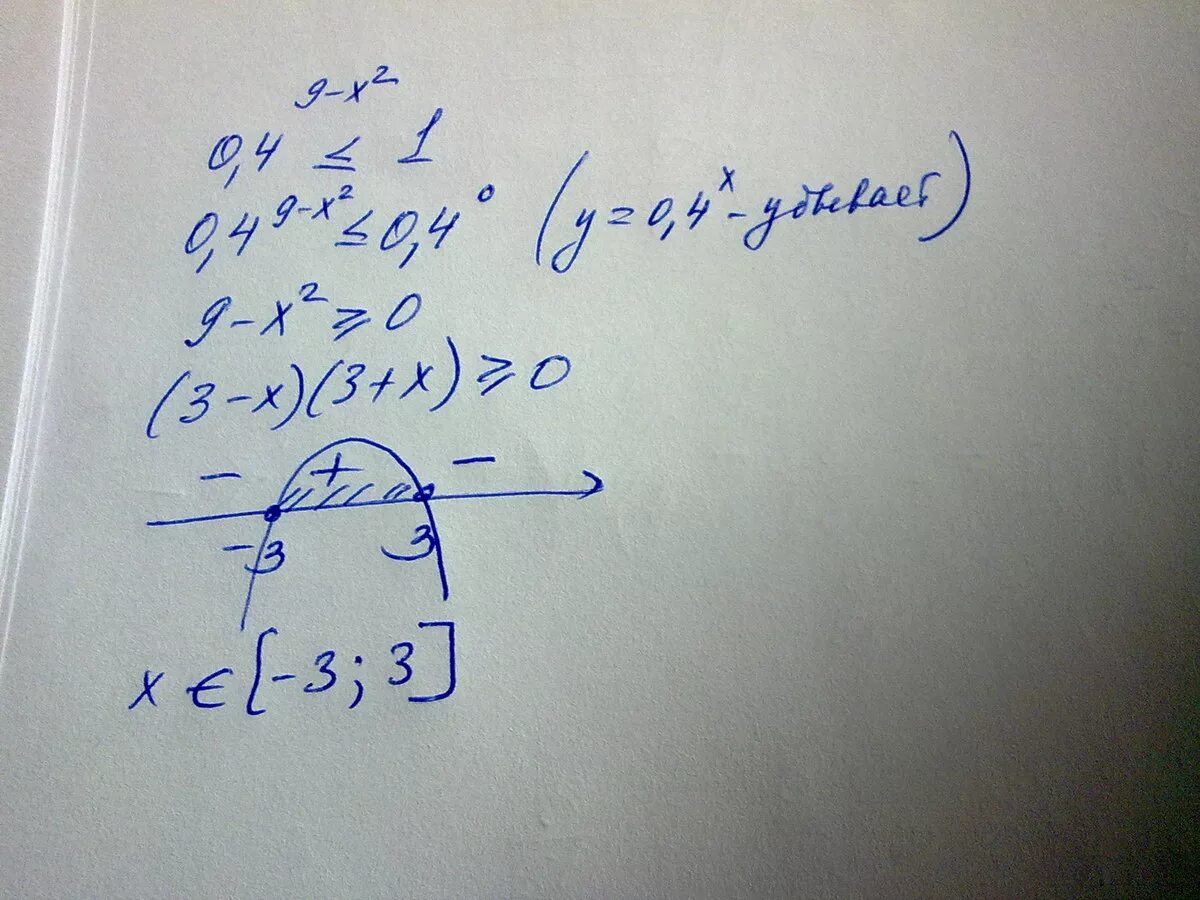 0,4^(9-x²) ≤ 1
0,4^(9-x²) ≤ 0,4⁰ (y = 0,4^x - убывает)
9-x² ≥ 0
(3-x)(3+x) ≥ 0
- + -
-3 3
x ∈ [-3; 3]